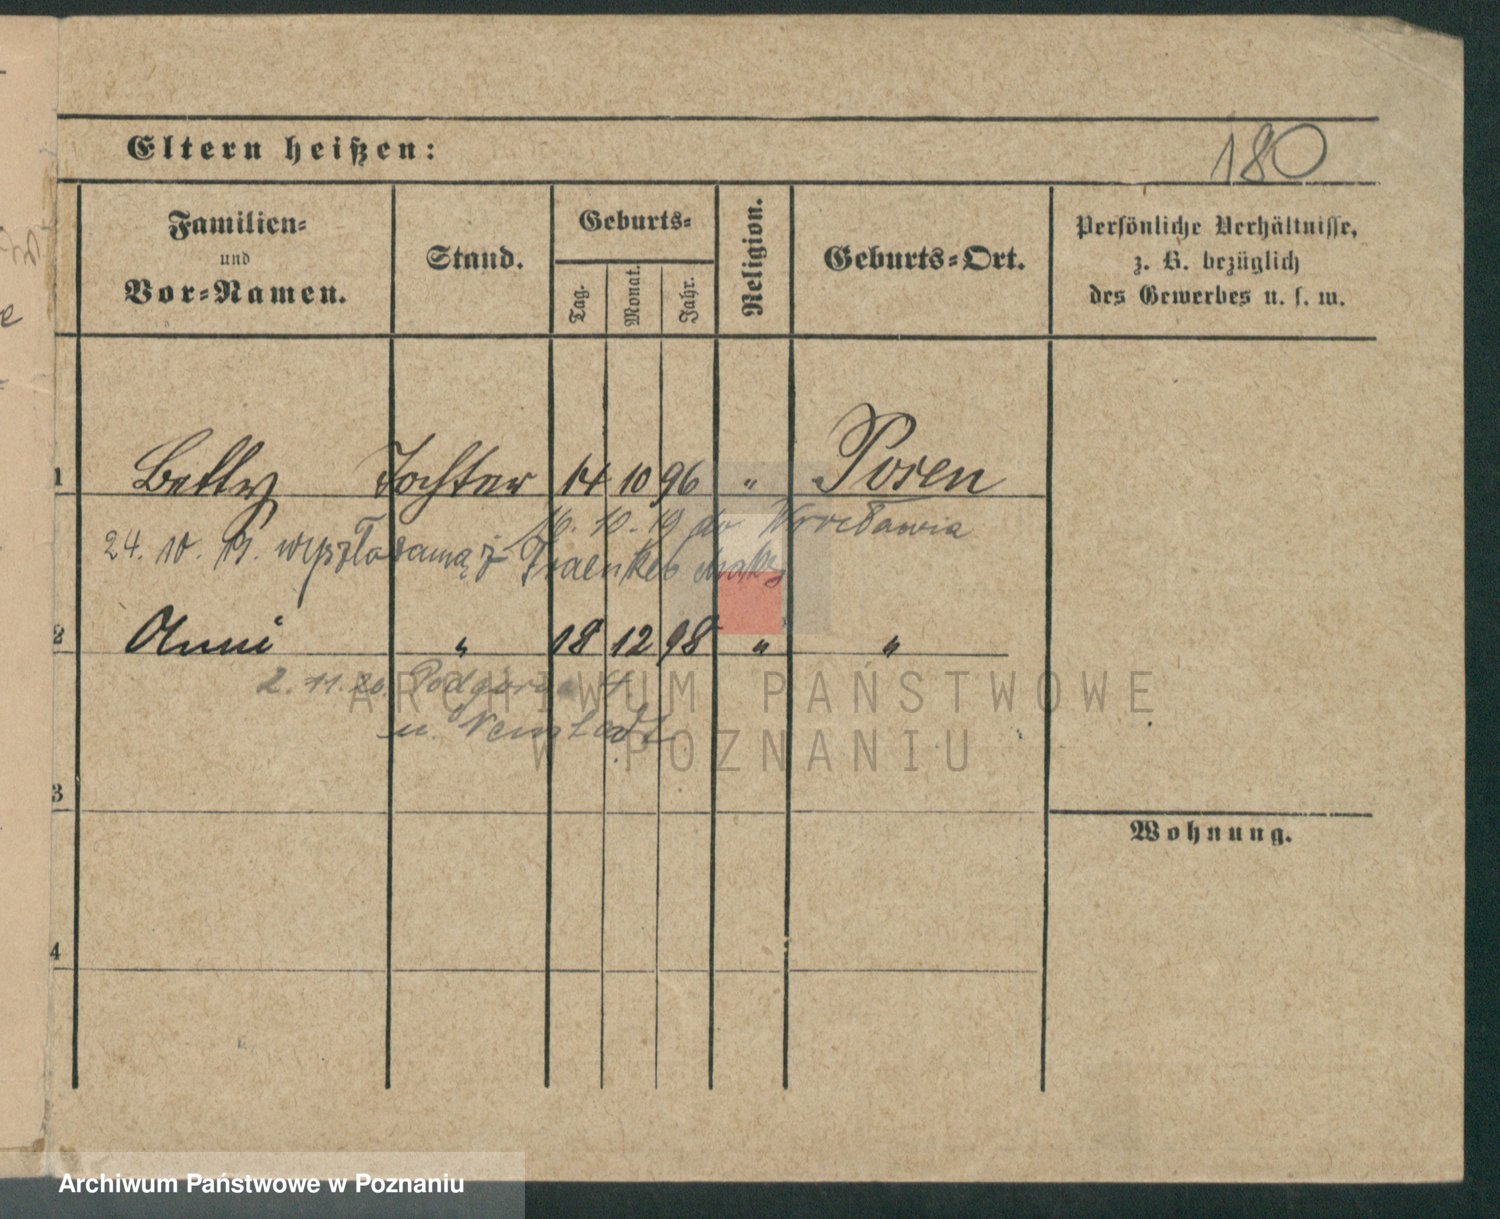 180
Eltern heißen:
Familien-
und
Vor-Namen.
Stand.
Geburts-
Tag.
Monat.
Jahr.
Religion.
Geburts-Ort.
Persönliche Verhältnisse,
z. B. bezüglich
des Gewerbes u. s. w.
1 Betty Tochter 14 10 96 " Posen
16. 10. 19 do Wrocławia
24. 10. 19. wyszła zamąż Fraenkel
2 Anni " 18 12 98 " "
2. 11. 20 Podgórna 4
u. Neustadt
3
Wohnung.
4
ARCHIWUM PAŃSTWOWE
W POZNANIU
Archiwum Państwowe w Poznaniu